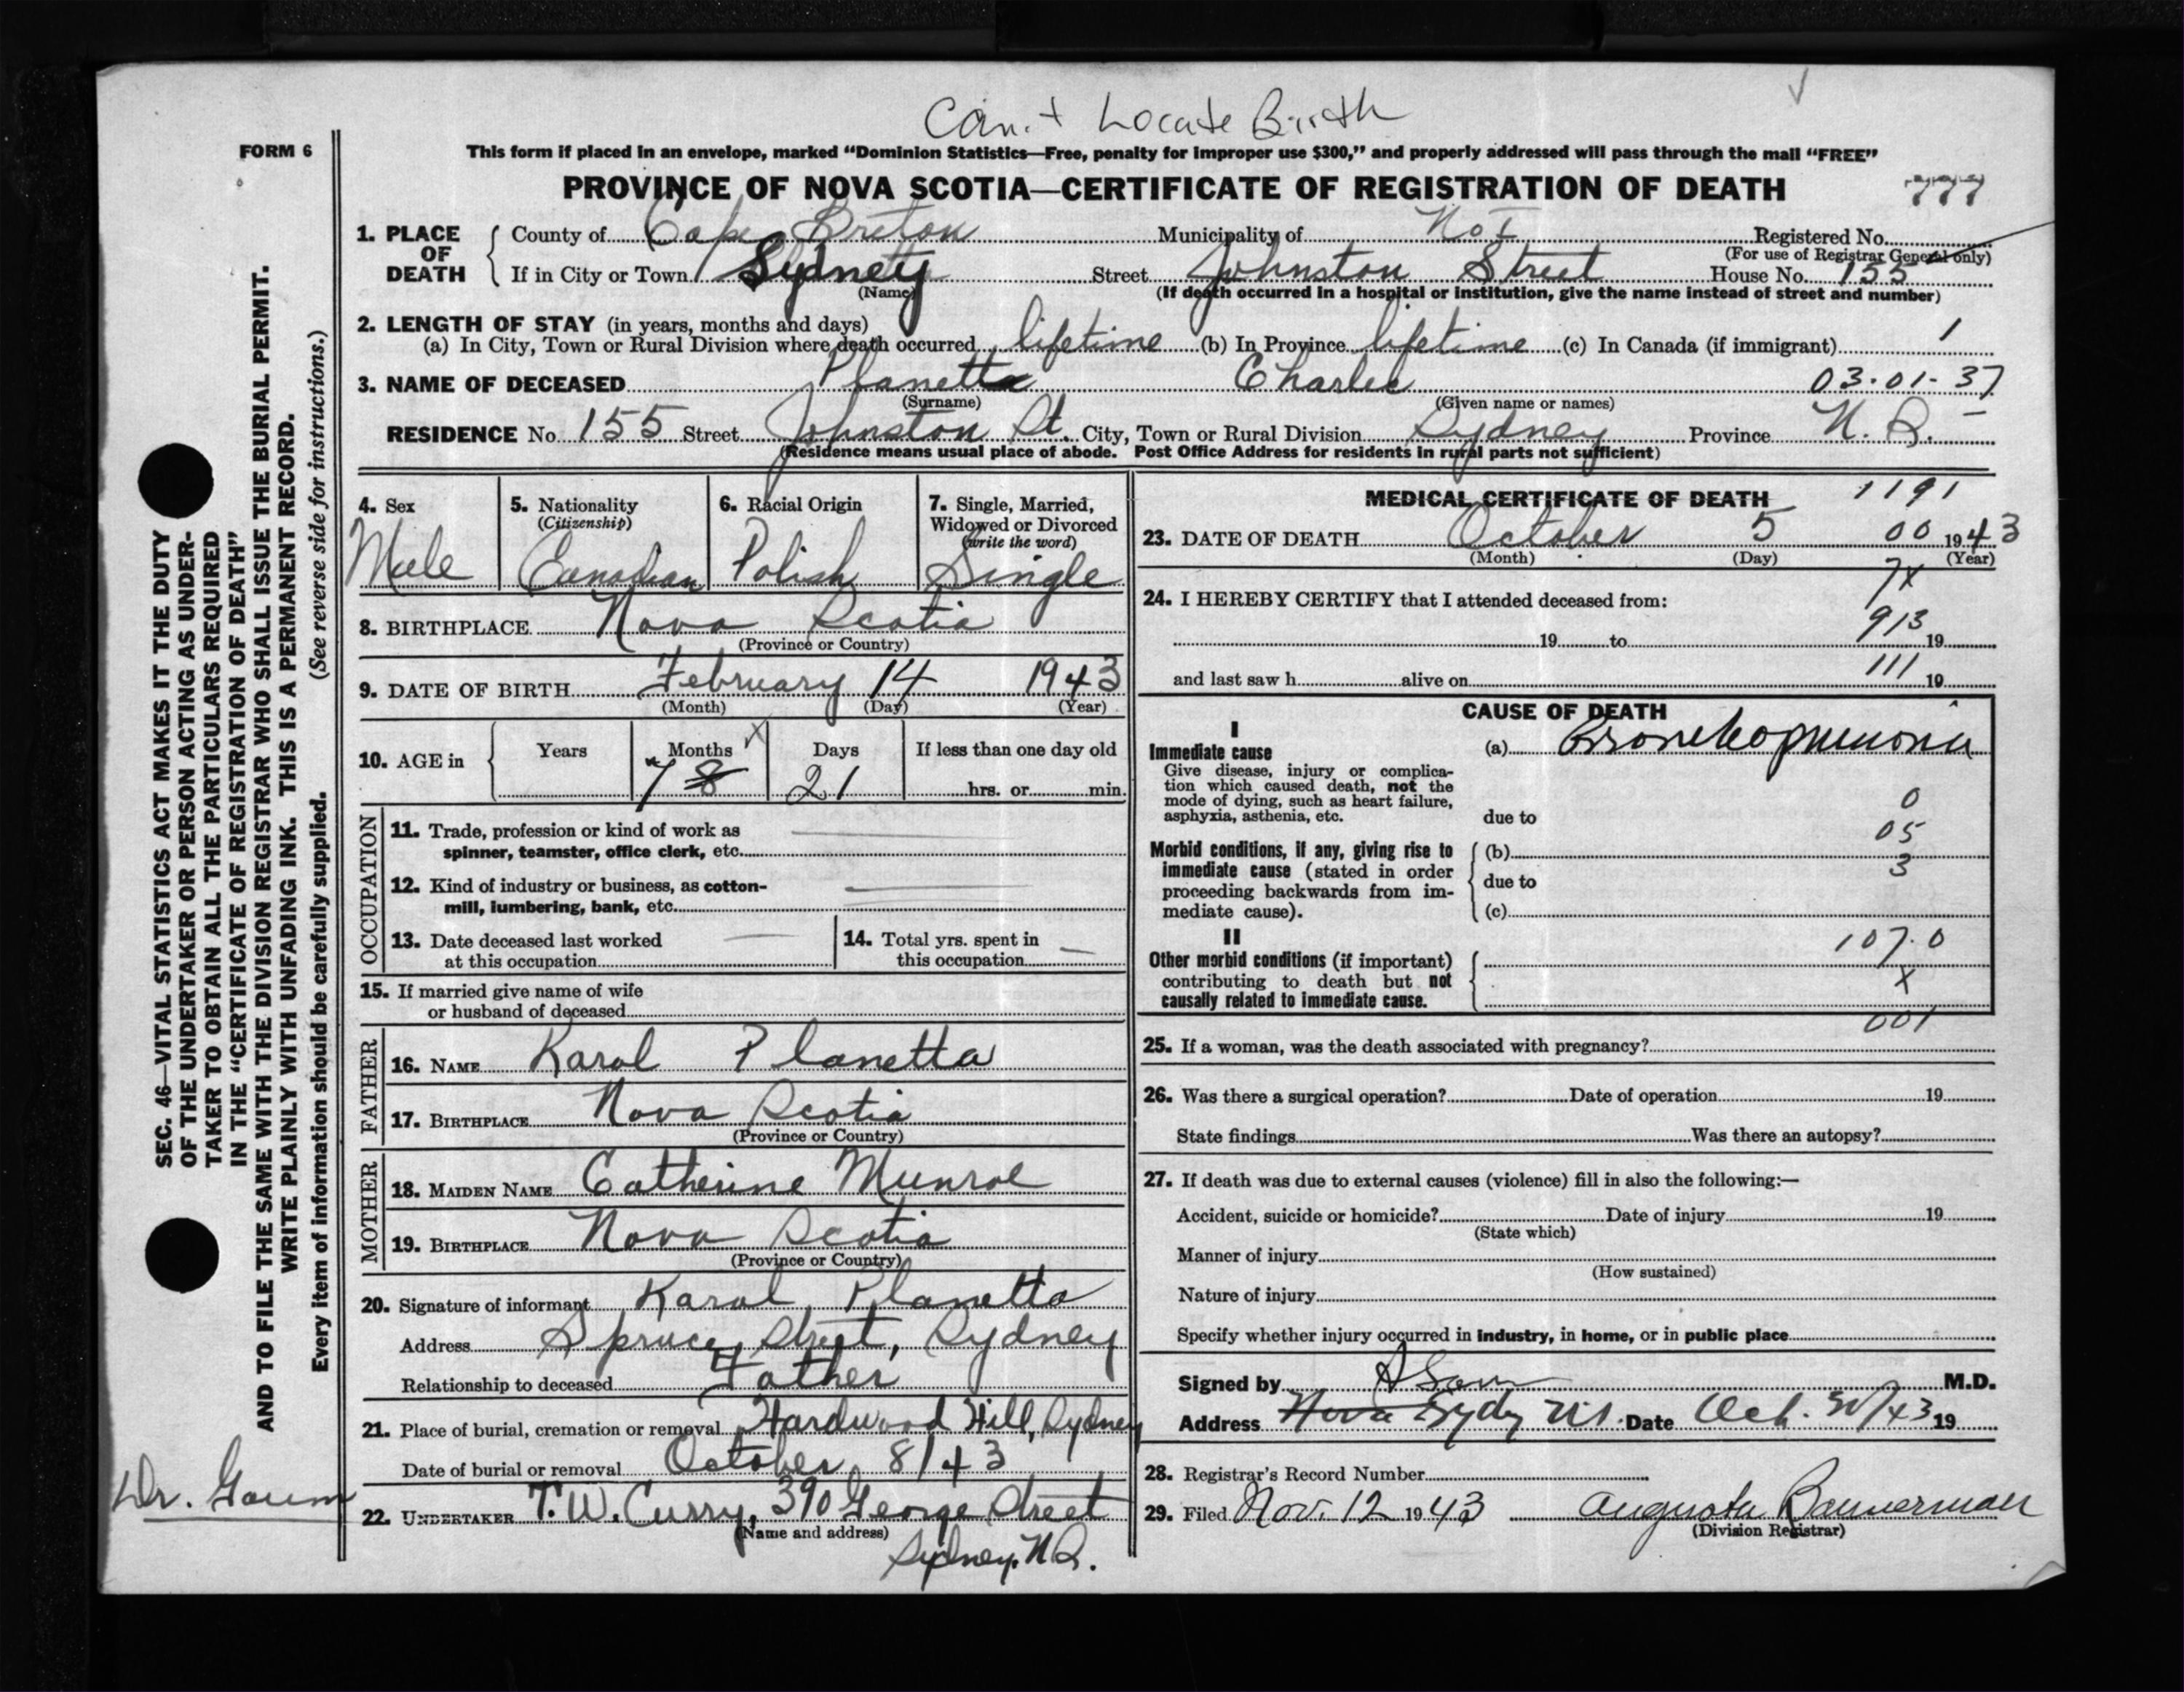 Can't Locate Birth
FORM 6
This form if placed in an envelope, marked “Dominion Statistics—Free, penalty for improper use $300,” and properly addressed will pass through the mail “FREE”
PROVINCE OF NOVA SCOTIA—CERTIFICATE OF REGISTRATION OF DEATH 777
1. PLACE OF DEATH
County of Cape Breton Municipality of No 1 Registered No.
(For use of Registrar General only)
If in City or Town Sydney Street Johnston Street House No. 155
(Name) (If death occurred in a hospital or institution, give the name instead of street and number)
2. LENGTH OF STAY (in years, months and days)
(a) In City, Town or Rural Division where death occurred lifetime (b) In Province lifetime (c) In Canada (if immigrant) 1
3. NAME OF DECEASED Planetta Charlie 03.01-37
(Surname) (Given name or names)
RESIDENCE No. 155 Street Johnston St. City, Town or Rural Division Sydney Province N.S.
(Residence means usual place of abode. Post Office Address for residents in rural parts not sufficient)
4. Sex
Male
5. Nationality
(Citizenship)
Canadian
6. Racial Origin
Polish
7. Single, Married,
Widowed or Divorced
(write the word)
Single
8. BIRTHPLACE Nova Scotia
(Province or Country)
9. DATE OF BIRTH February 14 1943
(Month) (Day) (Year)
10. AGE in Years Months Days If less than one day old
7 8 21 hrs. or min.
OCCUPATION
11. Trade, profession or kind of work as
spinner, teamster, office clerk, etc.
12. Kind of industry or business, as cotton-
mill, lumbering, bank, etc.
13. Date deceased last worked
at this occupation
14. Total yrs. spent in
this occupation
15. If married give name of wife
or husband of deceased
FATHER
16. NAME Karol Planetta
17. BIRTHPLACE Nova Scotia
(Province or Country)
MOTHER
18. MAIDEN NAME Catherine Munroe
19. BIRTHPLACE Nova Scotia
(Province or Country)
20. Signature of informant Karol Planetta
Address Spruce Street, Sydney
Relationship to deceased Father
21. Place of burial, cremation or removal Hardwood Hill, Sydney
Date of burial or removal October 8/43
22. UNDERTAKER T. W. Curry, 390 George Street
(Name and address)
Sydney, N.S.
MEDICAL CERTIFICATE OF DEATH 1191
23. DATE OF DEATH October 5 00 1943
(Month) (Day) (Year)
7x
24. I HEREBY CERTIFY that I attended deceased from:
19 to 913 19
and last saw h alive on 111 19
CAUSE OF DEATH
I
Immediate cause (a) Bronchopneumonia
Give disease, injury or complica-
tion which caused death, not the
mode of dying, such as heart failure,
asphyxia, asthenia, etc. due to 0
05
Morbid conditions, if any, giving rise to
immediate cause (stated in order
proceeding backwards from im-
mediate cause).
(b)
due to 3
(c)
II 107.0
Other morbid conditions (if important)
contributing to death but not
causally related to immediate cause.
X
001
25. If a woman, was the death associated with pregnancy?
26. Was there a surgical operation? Date of operation 19
State findings Was there an autopsy?
27. If death was due to external causes (violence) fill in also the following:—
Accident, suicide or homicide? Date of injury 19
(State which)
Manner of injury
(How sustained)
Nature of injury
Specify whether injury occurred in industry, in home, or in public place
Signed by M.D.
Address Nova Sydney N.S. Date Oct. 19
28. Registrar's Record Number
29. Filed Nov. 12 1943 Augusta Bannerman
(Division Registrar)
SEC. 46—VITAL STATISTICS ACT MAKES IT THE DUTY
OF THE UNDERTAKER OR PERSON ACTING AS UNDER-
TAKER TO OBTAIN ALL THE PARTICULARS REQUIRED
IN THE “CERTIFICATE OF REGISTRATION OF DEATH”
AND TO FILE THE SAME WITH THE DIVISION REGISTRAR WHO SHALL ISSUE THE BURIAL PERMIT.
WRITE PLAINLY WITH UNFADING INK. THIS IS A PERMANENT RECORD.
Every item of information should be carefully supplied. (See reverse side for instructions.)
Dr. Gaum